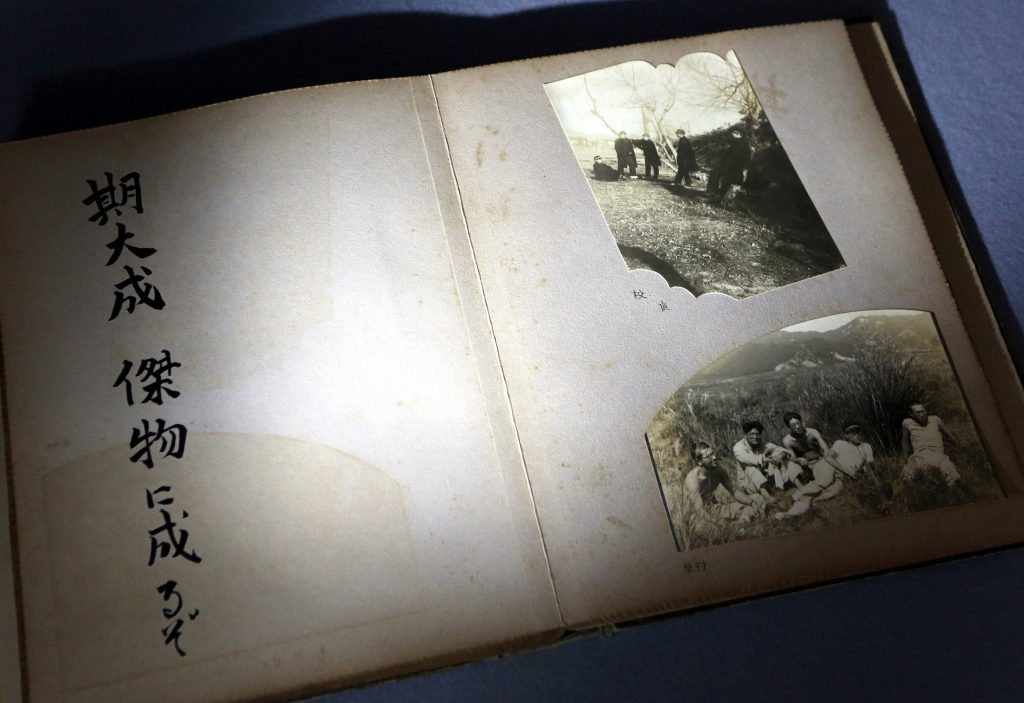 期大成 傑物に成るぞ
校庭